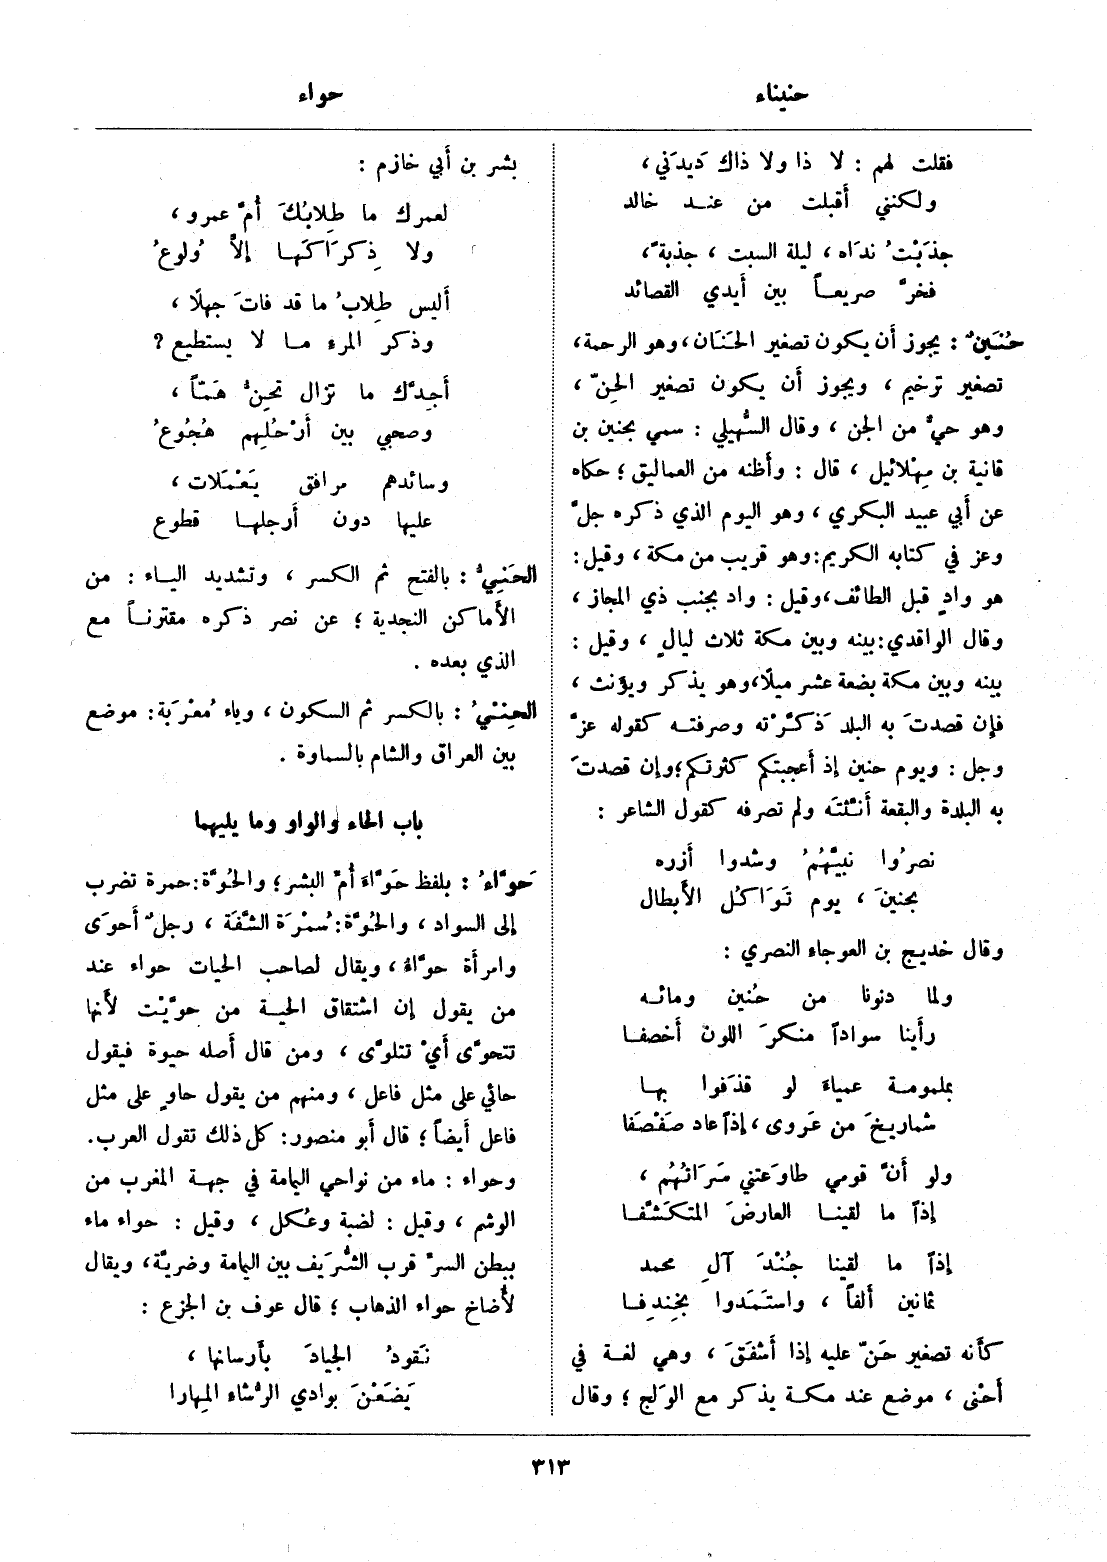 حنيناء
حواء
فقلت لهم : لا ذا ولا ذاك دَيدَني ،
ولكنني أقبلت من عنـد خالد
جذَبْتُ نداه ، ليلة السبت ، جذبةً ،
فخرَّ صريعـاً بين أيدي القصائد
حُنَينٌ : يجوز أن يكون تصغير الحَنَان ، وهو الرحمة ،
تصغير ترخيم ، ويجوز أن يكون تصغير الحِنّ ،
وهو حيٌّ من الجن ، وقال السُّهيلي : سمي بحنين بن
قانية بن مِهْلائيل ، قال : وأظنه من العماليق ؛ حكاه
عن أبي عبيد البكري ، وهو اليوم الذي ذكره جلَّ
وعز في كتابه الكريم : وهو قريب من مكة ، وقيل :
هو وادٍ قبل الطائف ، وقيل : واد بجنب ذي المجاز ،
وقال الواقدي : بينه وبين مكة ثلاث ليالٍ ، وقيل :
بينه وبين مكة بضعة عشر ميلًا ، وهو يذكر ويؤنث ،
فإن قصدتَ به البلد ذكَّرْته وصرفتـه كقوله عزَّ
وجل : ويوم حنين إذ أعجبتكم كثرتكم ؛ وإن قصدتَ
به البلدة والبقعة أنَّثْتَه ولم تصرفه كقول الشاعر :
نصرُوا نبيَّهُمُ وشدوا أزره
بحنينَ ، يوم تَوَاكُل الأبطال
وقال خديج بن العوجاء النصري :
ولما دنونا من حُنين ومائـه
رأينا سواداً منكرَ اللون أخصفـا
بملمومـة عمياءَ لو قذَفوا بهـا
شماريخَ من عَروى ، إذاً عاد صَفْصَفا
ولو أنَّ قومي طاوَعَتني سَرَاتُهُم ،
إذاً ما لقينـا العارضَ المتكشَّفـا
إذاً ما لقينا جُنْدَ آلِ محمد
ثمانين ألفاً ، واستَمَدوا بخِندِفـا
كأنه تصغير حَنّ عليه إذا أشْفَقَ ، وهي لغـة في
أحْنى ، موضع عند مكـة يذكر مع الوَلج ؛ وقال
بشر بن أبي خازم :
لعمرك ما طِلابُكَ أُمّ عمرو ،
ولا ذِكرَاكَهـا إلاَّ وُلوعُ
أليس طِلابُ ما قد فاتَ جهلًا ،
وذكر المرء مـا لا يستطيع ?
أجِدَّك ما تزال تحِنُّ هَمّاً ،
وصحبي بين أرْحُلِهم هُجُوعُ
وسائدهم مرافق يَعْمَلات ،
عليها دون أرجلهـا قطوع
الحَنِيُّ : بالفتح ثم الكسر ، وتشديد اليـاء : من
الأماكن النجدية ؛ عن نصر ذكره مقترنـاً مع
الذي بعده .
الحِنْيُ : بالكسر ثم السكون ، وياء مُعْرَبَة : موضع
بين العراق والشام بالسماوة .
باب الحاء والواو وما يليهما
حَوَّاءُ : بلفظ حَوَّاءَ أمّ البشر ؛ والحُوَّة : حمرة تضرب
إلى السواد ، والحُوَّة : سُمْرَة الشَّفَة ، رجلٌ أحوَى
وامرأة حوَّاءُ ، ويقال لصاحب الحيات حواء عند
من يقول إن اشتقاق الحيـة من حوَّيْت لأنها
تتحوَّى أيْ تتلوَّى ، ومن قال أصله حيوة فيقول
حائي على مثل فاعل ، ومنهم من يقول حاوٍ على مثل
فاعل أيضاً ؛ قال أبو منصور : كل ذلك تقول العرب .
وحواء : ماء من نواحي اليمامة في جهـة المغرب من
الوشم ، وقيل : لضبة وعُكل ، وقيل : حواء ماء
ببطن السرّ قرب الشُّرَيف بين اليمامة وضريَّة ، ويقال
لأُضاخ حواء الذهاب ؛ قال عوف بن الجزع :
نَقودُ الجيادَ بأرسانها ،
يَضَعْنَ بوادي الرُّشاء المِهارا
٣١٣